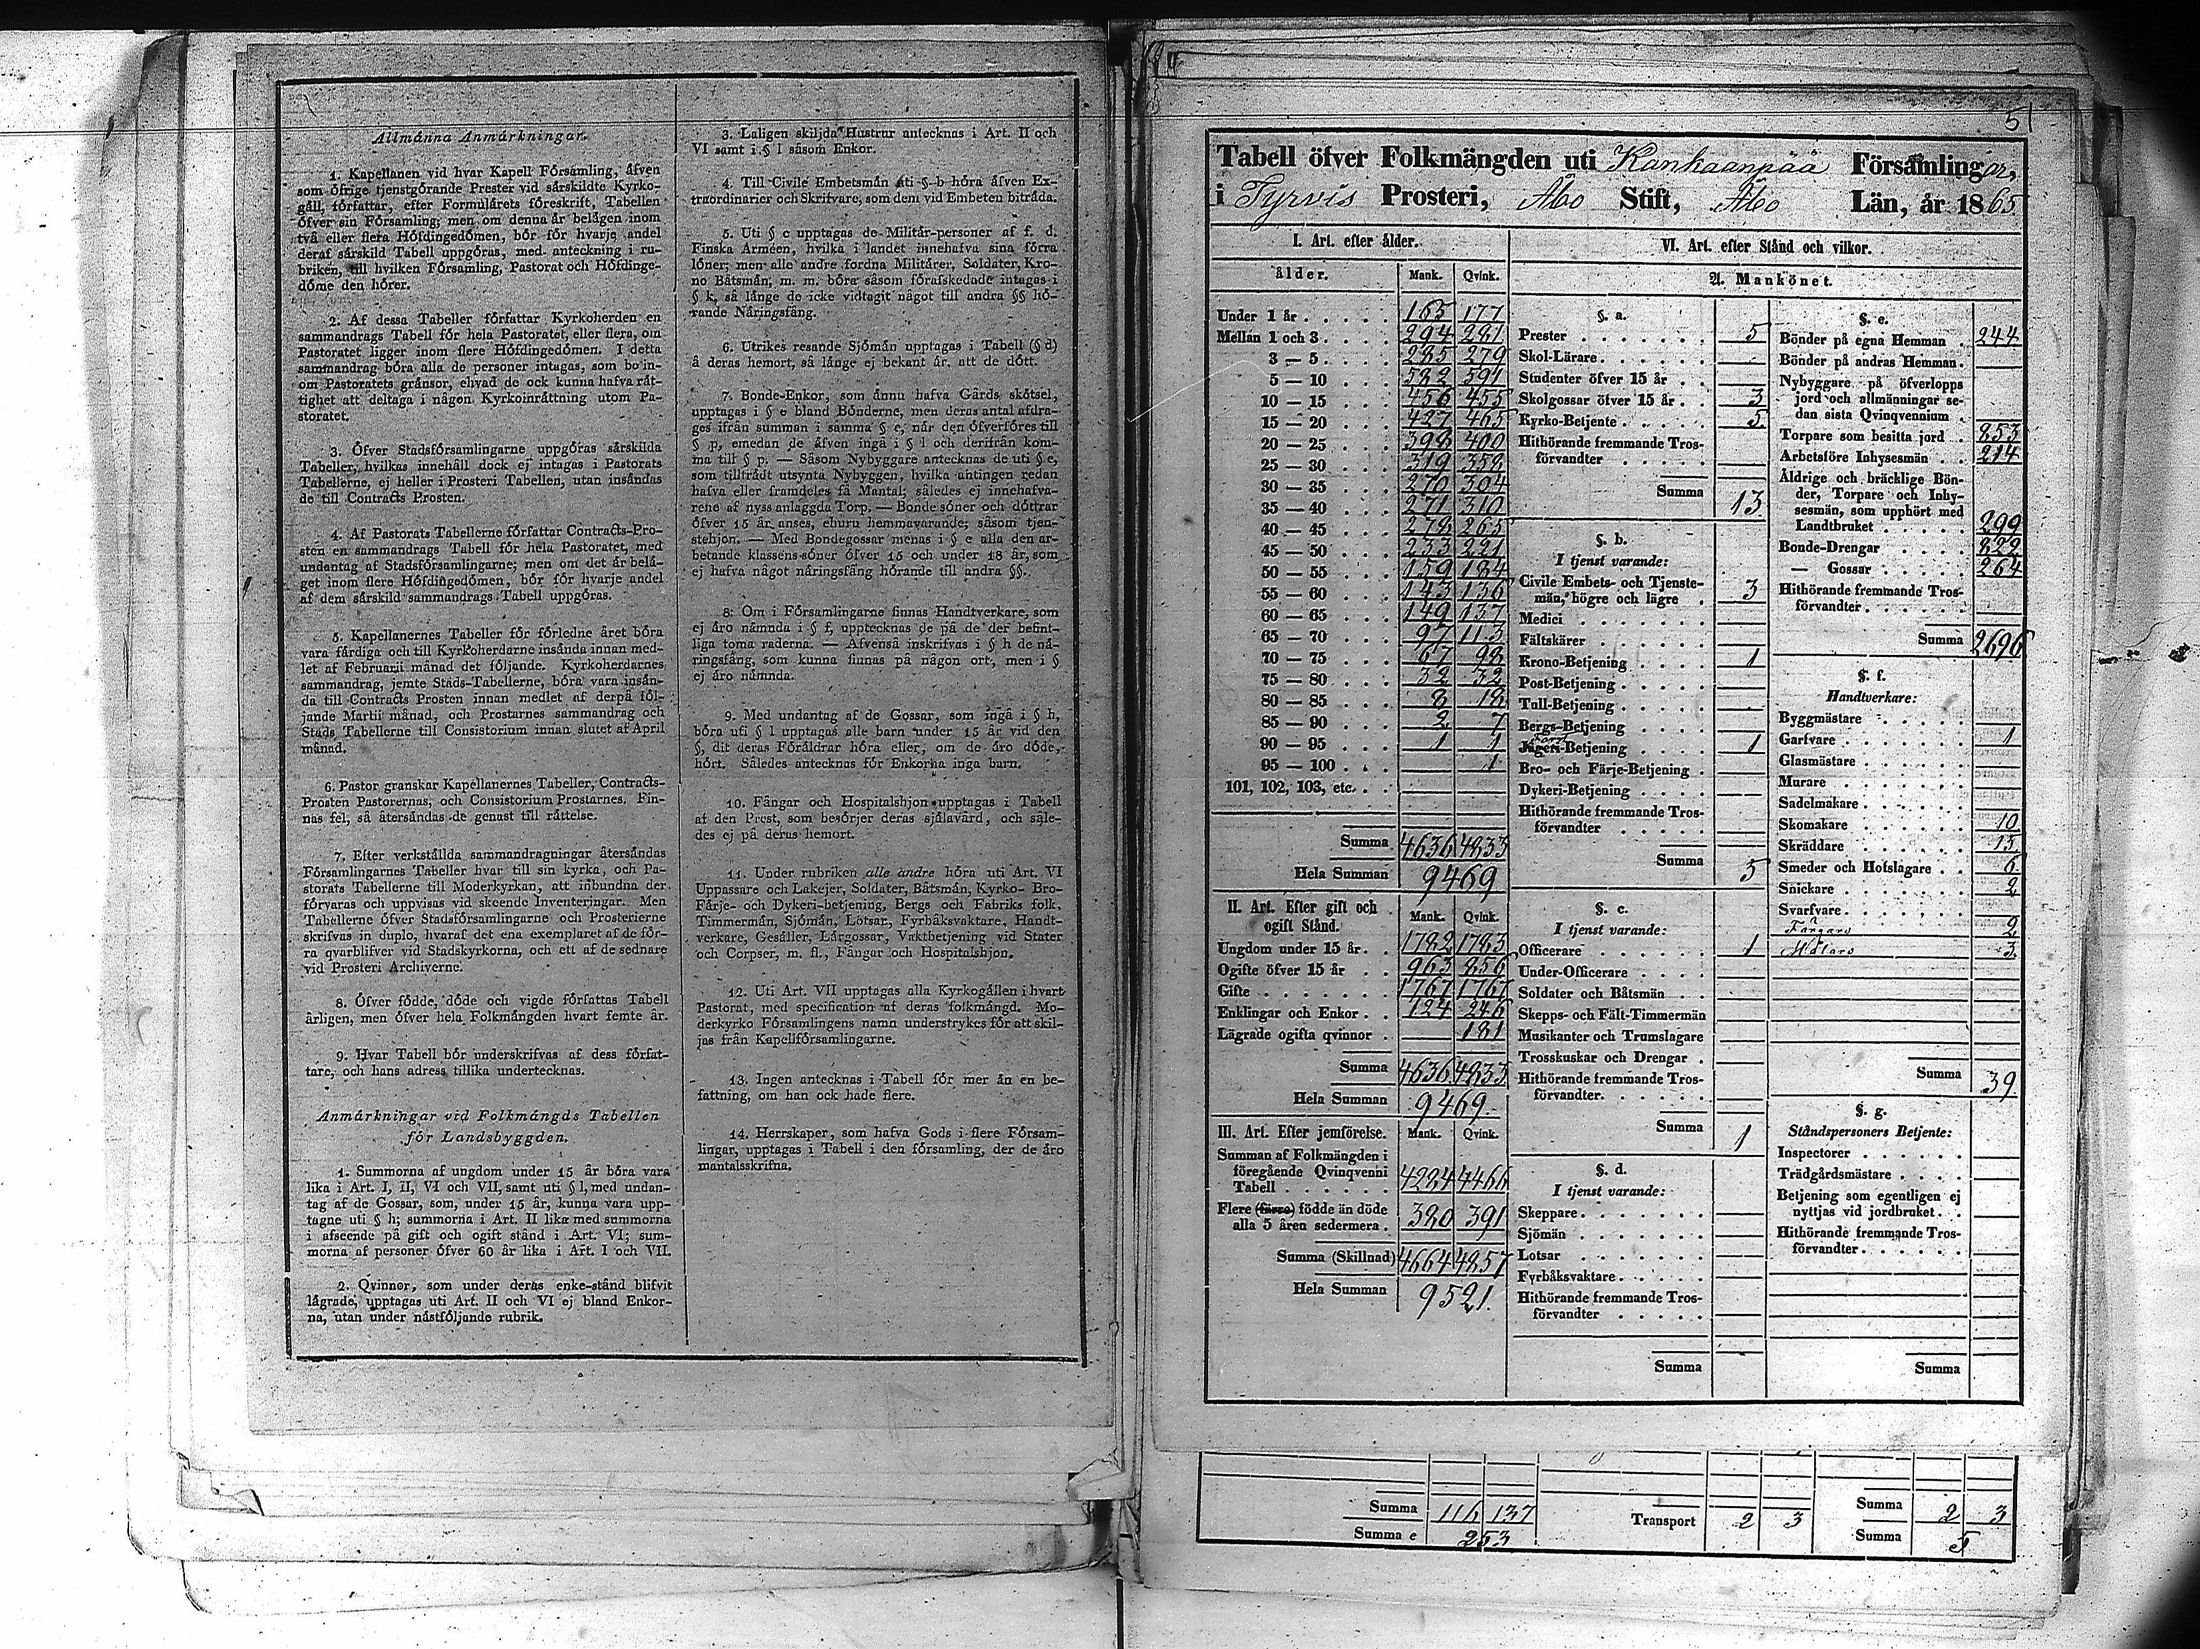 Allmänna Anmärkningar.
1. Kapellanen vid hvar Kapell Församling, äfven
som öfrige tjenstgörande Prester vid särskildte Kyrko-
gäll, författar, efter Formulärets föreskrift, Tabellen
öfver sin Församling; men om denna är belägen inom
två eller flera Höfdingedömen, bör för hvarje andel
deraf särskild Tabell uppgöras, med anteckning i ru-
briken, till hvilken Församling, Pastorat och Höfdinge-
döme den hörer.
2. Af dessa Tabeller författar Kyrkoherden en
sammandrags Tabell för hela Pastoratet, eller flera, om
Pastoratet ligger inom flere Höfdingedömen. I detta
sammandrag böra alla de personer intagas, som bo in-
om Pastoratets gränsor, ehvad de ock kunna hafva rät-
tighet att deltaga i någon Kyrkoinrättning utom Pa-
storatet.
3. Öfver Stadsförsamlingarne uppgöras särskilda
Tabeller, hvilkas innehåll dock ej intagas i Pastorats
Tabellerne, ej heller i Prosteri Tabellen, utan insändas
de till Contracts Prosten.
4. Af Pastorats Tabellerne författar Contracts-Pro-
sten en sammandrags Tabell för hela Pastoratet, med
undantag af Stadsförsamlingarne; men om det är belä-
get inom flere Höfdingedömen, bör för hvarje andel
af dem särskild sammandrags Tabell uppgöras.
5. Kapellanernes Tabeller för förledne året böra
vara färdiga och till Kyrkoherdarne insända innan med-
let af Februarii månad det följande. Kyrkoherdarnes
sammandrag, jemte Stads-Tabellerne, böra vara insän-
da till Contracts Prosten innan medlet af derpå föl-
jande Martii månad, och Prostarnes sammandrag och
Stads Tabellerne till Consistorium innan slutet af April
månad.
6. Pastor granskar Kapellanernes Tabeller, Contracts-
Prosten Pastorernas, och Consistorium Prostarnes. Fin-
nas fel, så återsändas de genast till rättelse.
7. Efter verkställda sammandragningar återsändas
Församlingarnes Tabeller hvar till sin kyrka, och Pa-
storats Tabellerne till Moderkyrkan, att inbundna der
förvaras och uppvisas vid skeende Inventeringar. Men
Tabellerne öfver Stadsförsamlingarne och Prosterierne
skrifvas in duplo, hvaraf det ena exemplaret af de för-
ra qvarblifver vid Stadskyrkorna, och ett af de sednare
vid Prosteri Archiverne.
8. Öfver födde, döde och vigde författas Tabell
årligen, men öfver hela Folkmängden hvart femte år.
9. Hvar Tabell bör underskrifvas af dess förfat-
tare, och hans adress tillika undertecknas.
Anmärkningar vid Folkmängds Tabellen
för Landsbyggden.
1. Summorna af ungdom under 15 år böra vara
lika i Art. I, II, VI och VII, samt uti § l, med undan-
tag af de Gossar, som, under 15 år, kunna vara upp-
tagne uti § h; summorna i Art. II lika med summorna
i afseende på gift och ogift stånd i Art. VI; sum-
morna af personer öfver 60 år lika i Art. I och VII.
2. Qvinnor, som under deras enke-stånd blifvit
lägrade, upptagas uti Art. II och VI ej bland Enkor-
na, utan under nästföljande rubrik.
3. Laligen skiljda Hustrur antecknas i Art. II och
VI samt i § l såsom Enkor.
4. Till Civile Embetsmän uti § b höra äfven Ex-
traordinarier och Skrifvare, som dem vid Embeten biträda.
5. Uti § c upptagas de Militär-personer af f. d.
Finska Arméen, hvilka i landet innehafva sina förra
löner; men alle andre fordna Militärer, Soldater, Kro-
no Båtsmän, m. m. böra såsom förafskedade intagas i
§ k, så länge de icke vidtagit något till andra §§ hö-
rande Näringsfång.
6. Utrikes resande Sjömän upptagas i Tabell (§ d)
å deras hemort, så länge ej bekant är, att de dött.
7. Bonde-Enkor, som ännu hafva Gårds skötsel,
upptagas i § e bland Bönderne, men deras antal afdra-
ges ifrån summan i samma § e, när den öfverföres till
§ p, emedan de äfven ingå i § l och derifrån kom-
ma till § p. — Såsom Nybyggare antecknas de uti § e,
som tillträdt utsynta Nybyggen, hvilka antingen redan
hafva eller framdeles få Mantal; således ej innehafva-
rene af nyss anlaggda Torp. — Bonde söner och döttrar
öfver 15 år anses, ehuru hemmavarande, såsom tjen-
stehjon. — Med Bondegossar menas i § e alla den ar-
betande klassens söner öfver 15 och under 18 år, som
ej hafva något näringsfång hörande till andra §§.
8. Om i Församlingarne finnas Handtverkare, som
ej äro nämnda i § f, upptecknas de på de der befint-
liga toma raderna. — Äfvenså inskrifvas i § h de nä-
ringsfång, som kunna finnas på någon ort, men i §
ej äro nämnda.
9. Med undantag af de Gossar, som ingå i § h,
böra uti § l upptagas alle barn under 15 år vid den
§, dit deras Föräldrar höra eller, om de äro döde,
hört. Således antecknas för Enkorna inga barn.
10. Fångar och Hospitalshjon upptagas i Tabell
af den Prest, som besörjer deras själavård, och såle-
des ej på deras hemort.
11. Under rubriken alle andre höra uti Art. VI
Uppassare och Lakejer, Soldater, Båtsmän, Kyrko- Bro-
Färje- och Dykeri-betjening, Bergs och Fabriks folk,
Timmermän, Sjömän, Lotsar, Fyrbåksvaktare, Handt-
verkare, Gesäller, Lärgossar, Vaktbetjening vid Stater
och Corpser, m. fl., Fångar och Hospitalshjon.
12. Uti Art. VII upptagas alla Kyrkogällen i hvart
Pastorat, med specification af deras folkmängd. Mo-
derkyrko Församlingens namn understrykes för att skil-
jas från Kapellförsamlingarne.
13. Ingen antecknas i Tabell för mer än en be-
fattning, om han ock hade flere.
14. Herrskaper, som hafva Gods i flere Försam-
lingar, upptagas i Tabell i den församling, der de äro
mantalsskrifna.
51
Tabell öfver Folkmängden uti Kankaanpää Församlingar,
i Tyrvis Prosteri, Åbo Stift, Åbo Län, år 1865.
I. Art. efter ålder.
ålder. Mank. Qvink.
Under 1 år 165 177
Mellan 1 och 3 294 281
3 — 5 285 279
5 — 10 582 591
10 — 15 456 455
15 — 20 427 465
20 — 25 398 400
25 — 30 319 358
30 — 35 270 304
35 — 40 271 310
40 — 45 278 265
45 — 50 233 221
50 — 55 159 184
55 — 60 143 136
60 — 65 149 137
65 — 70 97 113
70 — 75 67 98
75 — 80 32 32
80 — 85 8 18
85 — 90 2 7
90 — 95 1 1
95 — 100 1
101, 102, 103, etc.
Summa 4636 4833
Hela Summan 9469
II. Art. Efter gift och
ogift Stånd. Mank. Qvink.
Ungdom under 15 år 1782 1783
Ogifte öfver 15 år 963 856
Gifte 1767 1767
Enklingar och Enkor 124 246
Lägrade ogifta qvinnor 181
Summa 4636 4833
Hela Summan 9469
III. Art. Efter jemförelse. Mank. Qvink.
Summan af Folkmängden i
föregående Qvinqvenni
Tabell 4284 4466
Flere (färre) födde än döde
alla 5 åren sedermera 380 391
Summa (Skillnad) 4664 4857
Hela Summan 9521.
VI. Art. efter Stånd och vilkor.
A. Mankönet.
§. a.
Prester 5
Skol-Lärare
Studenter öfver 15 år
Skolgossar öfver 15 år 3
Kyrko-Betjente 5
Hithörande fremmande Tros-
förvandter
Summa 13
§. b.
I tjenst varande:
Civile Embets- och Tjenste-
män, högre och lägre 3
Medici
Fältskärer
Krono-Betjening 1
Post-Betjening
Tull-Betjening
Bergs-Betjening
Forst
Jägeri-Betjening 1
Bro- och Färje-Betjening
Dykeri-Betjening
Hithörande fremmande Tros-
förvandter
Summa 5
§. c.
I tjenst varande:
Officerare 1
Under-Officerare
Soldater och Båtsmän
Skepps- och Fält-Timmermän
Musikanter och Trumslagare
Trosskuskar och Drengar
Hithörande fremmande Tros-
förvandter
Summa 1
§. d.
I tjenst varande:
Skeppare
Sjömän
Lotsar
Fyrbåksvaktare
Hithörande fremmande Tros-
förvandter
Summa
§. e.
Bönder på egna Hemman 244
Bönder på andras Hemman
Nybyggare på öfverlopps
jord och allmänningar se-
dan sista Qvinqvennium
Torpare som besitta jord 853
Arbetsföre Inhysesmän 214
Åldrige och bräcklige Bön-
der, Torpare och Inhy-
sesmän, som upphört med
Landtbruket 299
Bonde-Drengar 822
— Gossar 264
Hithörande fremmande Tros-
förvandter
Summa 2696
§. f.
Handtverkare:
Byggmästare
Garfvare 1
Glasmästare
Murare
Sadelmakare
Skomakare 10
Skräddare 15
Smeder och Hofslagare 6
Snickare 2
Svarfvare
Färgare 2
Målare 3
Summa 39
§. g.
Ståndspersoners Betjente:
Inspectorer
Trädgårdsmästare
Betjening som egentligen ej
nyttjas vid jordbruket
Hithörande fremmande Tros-
förvandter
Summa
Summa 116 137 Transport 2 3 Summa 2 3
Summa e 253 Summa 5